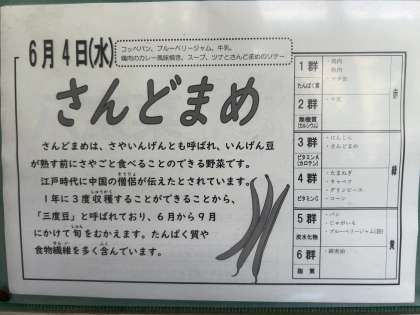 6月4日(水)
コッペパン、ブルーベリージャム、牛乳、
鶏肉のカレー風味焼き、スープ、ツナとさんどまめのソテー
さんどまめ
さんどまめは、さやいんげんとも呼ばれ、いんげん豆
が熟す前にさやごと食べることのできる野菜です。
江戸時代に中国の僧侶が伝えたとされています。
1年に3度収穫することができることから、
「三度豆」と呼ばれており、6月から9月
にかけて旬をむかえます。たんぱく質や
食物繊維を多く含んでいます。
1群
たんぱく質
・鶏肉
2群
無機質
(カルシウム)
赤
3群
ビタミンA
(カロテン)
・にんじん
・さんどまめ
4群
ビタミンC
・たまねぎ
・キャベツ
・グリンピース
・コーン
緑
5群
炭水化物
・パン
・じゃがいも
・ブルーベリージャム(袋)
6群
脂質
黄